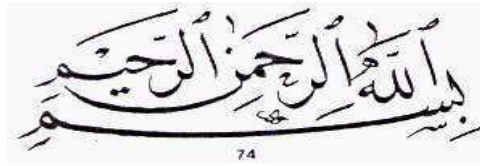 بِسْمِ اللّٰهِ الرَّحْمٰنِ الرَّحِيْمِ
74